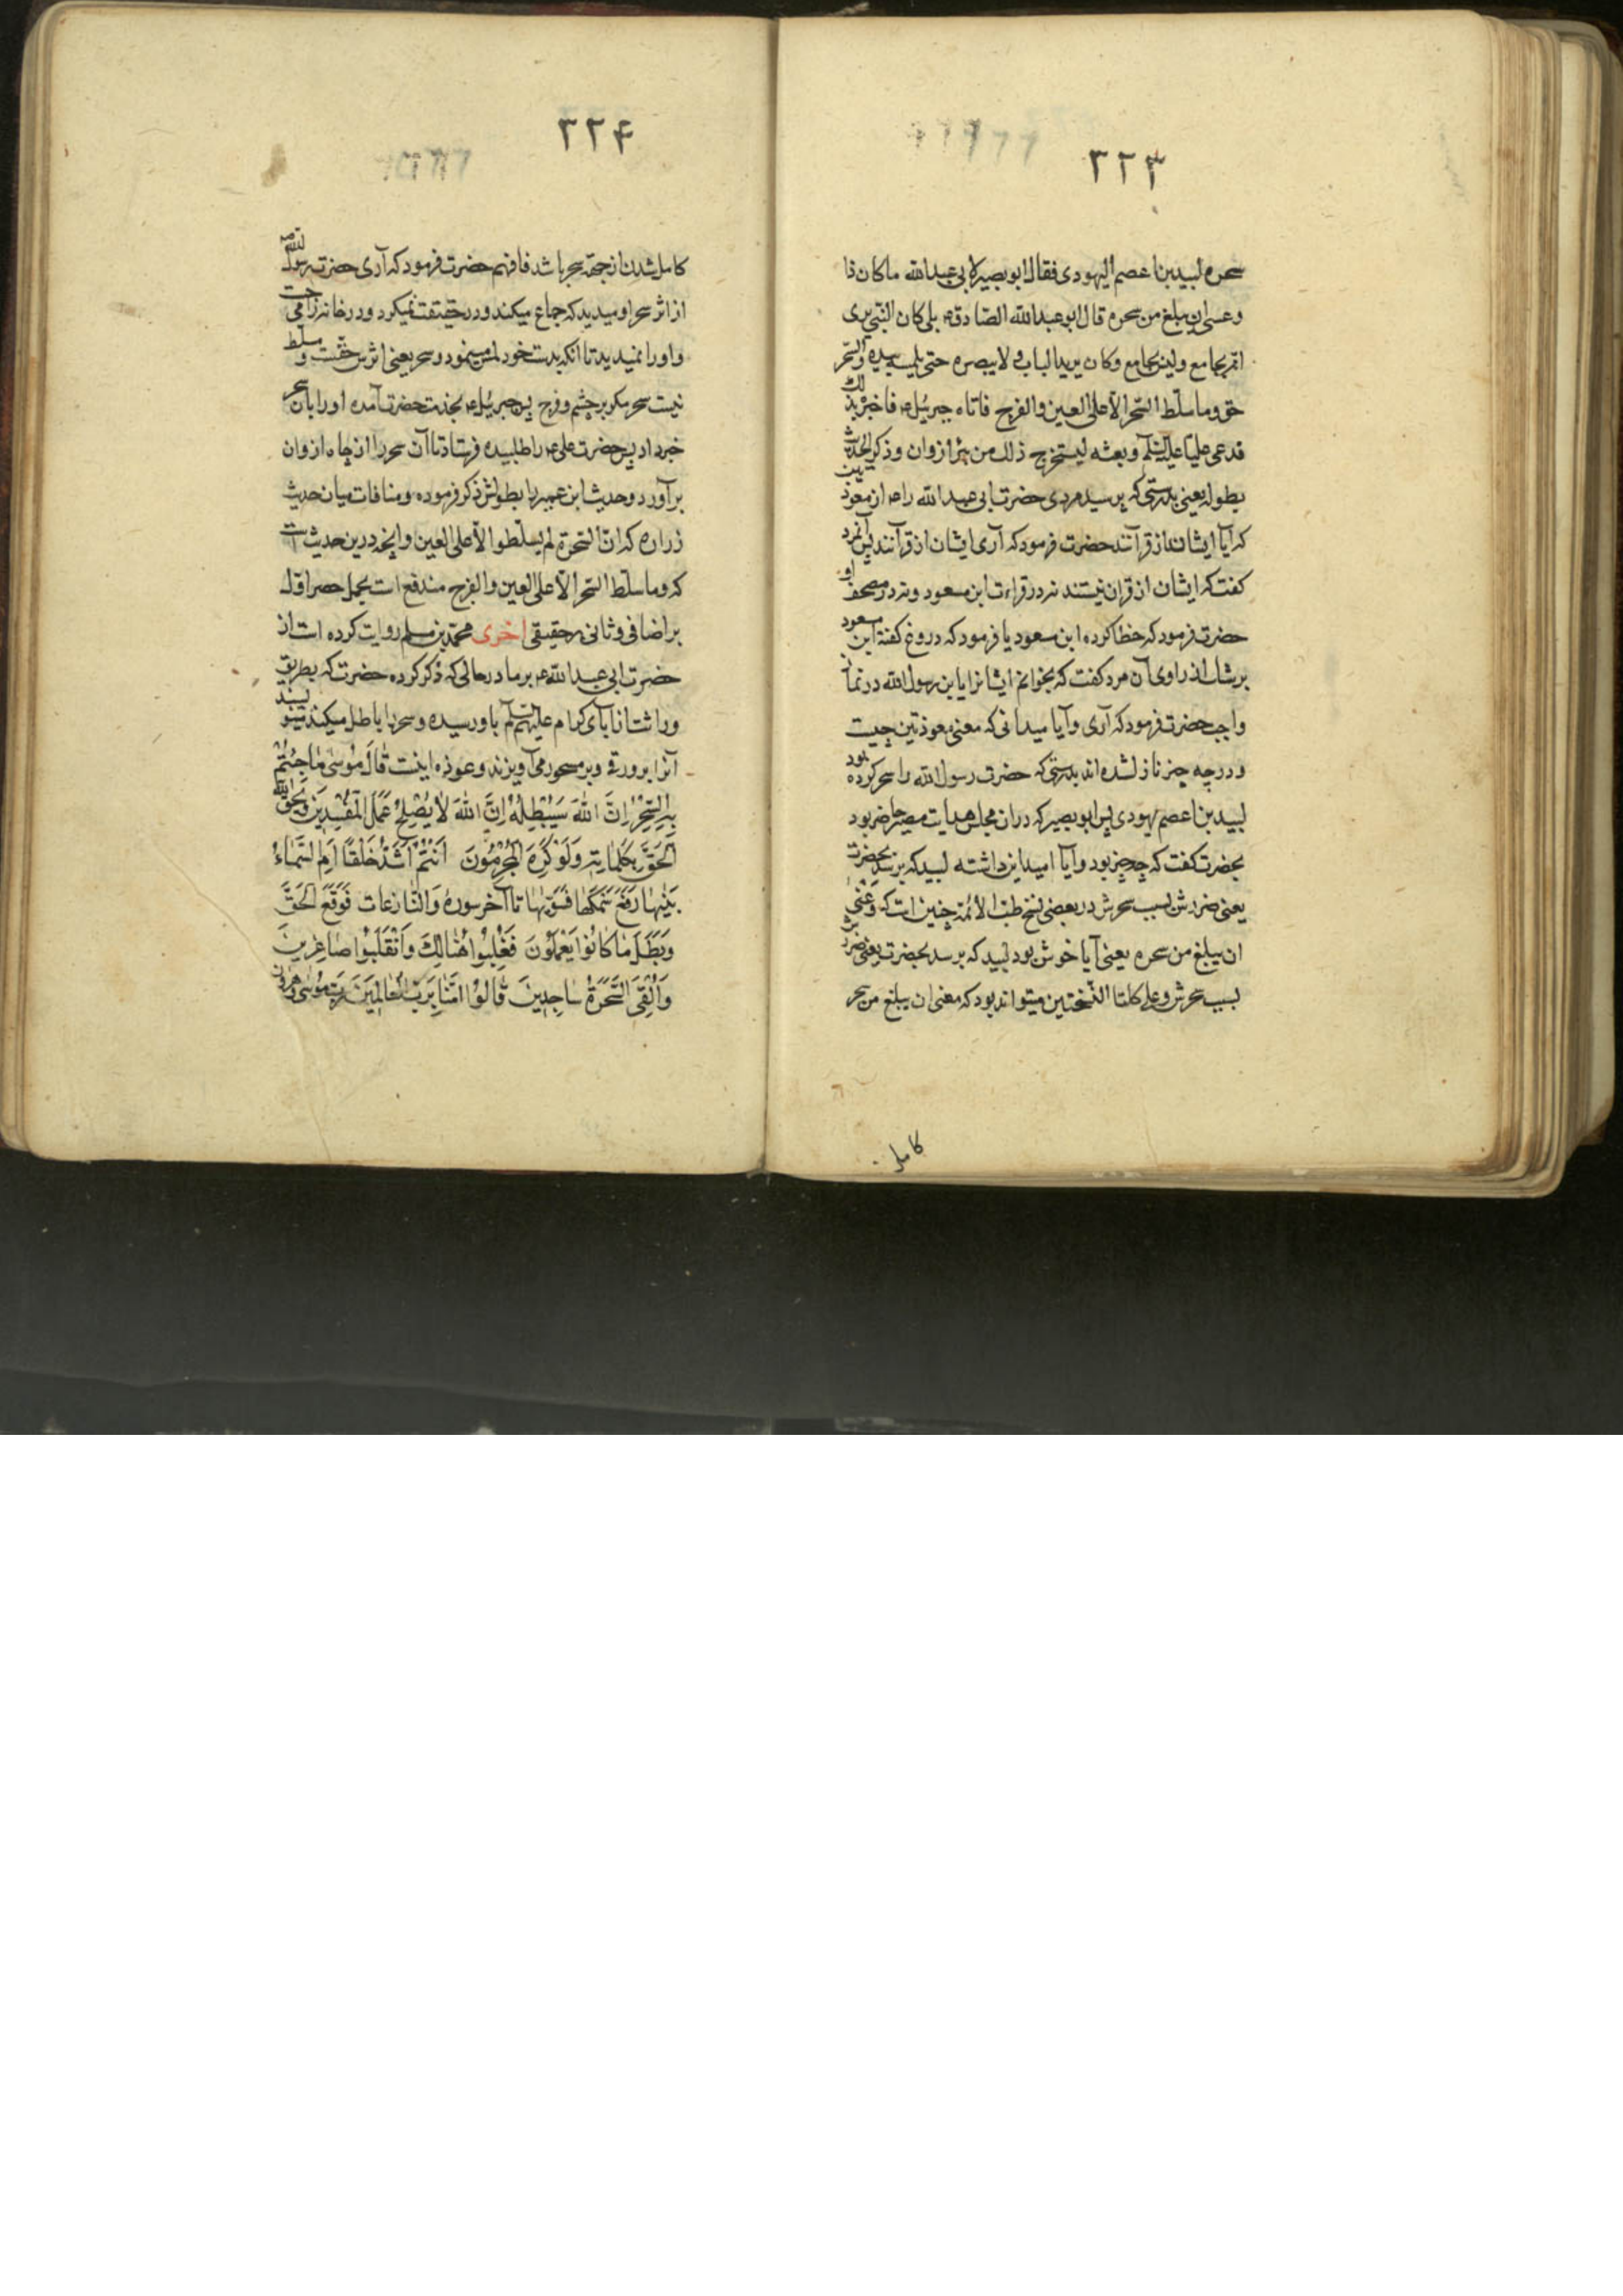 ۳۲۳
سحره لبید بن اعصم الیهودی فقال ابو بصیر لابی عبدالله ما کان ذا
و عسی ان یبلغ من سحره قال ابو عبدالله الصادق ع بلی کان النبی یری
انه یجامع ولیس یجامع وکان یرید الباب ولا یبصره حتی یلمسه بیده والسحر
حق وما سلط السحر الا علی العین والفرج فاتاه جبرئیل ع فاخبره بذلک
فدعی علیا علیه السلم وبعثه لیستخرج ذلک من بئر ازوان وذکر الحدیث
بطوله یعنی بدرستی که پرسید مردی حضرت ابی عبدالله را ع از معوذتین
که آیا ایشان از قرآنند حضرت فرمود که آری ایشان از قرآنند پس آنمرد
کفت که ایشان از قران نیستند نه در قراءت ابن مسعود و نه در مصحف او
حضرت فرمود که خطا کرده ابن مسعود یا فرمود که دروغ کفته ابن مسعود
برشک راوی آن مرد کفت که بخوانم ایشانرا یا بن رسول الله در نماز
واجب حضرت فرمود که آری و آیا میدانی که معنی معوذتین چیست
و در چه چیز نازل شده اند بدرستی که حضرت رسول الله را سحر کرده بود
لبید بن اعصم یهودی پس ابو بصیر که دران مجلس هدایت مصیر حاضر بود
بحضرت کفت که چه چیز بود و آیا امید این داشته لبید که برسد بحضرت
یعنی ضررش بسبب سحرش در بعضی نسخ طب الائمة چنین است که
ان یبلغ من سحره یعنی آیا خوش بود لبید که برسد بحضرت یعنی ضررش
بسبب سحرش و علی کلتا النسختین میتواند بود که معنی ان یبلغ من سحر
کامل
۳۲۴
کامل شدن از جهة سحر باشد فافهم حضرت فرمود که آری حضرت رسول الله
از اثر سحر او میدید که جماع میکند و در حقیقت نمیکرد و در خانه را می جست
و او را نمیدید تا آنکه بدست خود لمس مینمود و سحر یعنی اثرش حقست و مسلط
نیست سحر مکر بر چشم و فرج پس جبرئیل ع بخدمت حضرت آمده او را بان سحر
خبر داد پس حضرت علی ع را طلبیده فرستاد تا آن سحر را از چاه ازوان
برآورد و حدیث ابن عمیر را بطولش ذکر فرموده و منافات میان حدیث
زراره که ان السحرة لم یسلطوا الا علی العین و آنچه درین حدیث است
که وما سلط السحر الا علی العین والفرج مندفع است بحمل حصر اول
بر اضافی و ثانی بر حقیقی اخری محمد بن مسلم روایت کرده است از
حضرت ابی عبدالله ع بر ما در حالی که ذکر کرده حضرت که بطریق
وراثت از آبای کرام علیهم السلم باو رسیده و سحر را باطل میکند بنویسند
آنرا بر ورقی و بر مسحور می آویزند و عوذه اینست قَالَ مُوسٰی مٰا جِئْتُمْ
بِهِ السِّحْرُ اِنَّ اللّٰهَ سَیُبْطِلُهُ اِنَّ اللّٰهَ لٰا یُصْلِحُ عَمَلَ الْمُفْسِدِینَ وَیُحِقُّ اللّٰهُ
الْحَقَّ بِکَلِمٰاتِهِ وَلَوْ کَرِهَ الْمُجْرِمُونَ اَنْتُمْ اَشَدُّ خَلْقًا اَمِ السَّمٰاءُ
بَنٰیهٰا رَفَعَ سَمْکَهٰا فَسَوّٰیهٰا تا آخر سورهٔ وَالنّٰازِعات فَوَقَعَ الْحَقُّ
وَبَطَلَ مٰا کٰانُوا یَعْمَلُونَ فَغُلِبُوا هُنٰالِکَ وَانْقَلَبُوا صٰاغِرِینَ
وَاُلْقِیَ السَّحَرَةُ سٰاجِدِینَ قٰالُوا اٰمَنّٰا بِرَبِّ الْعٰالَمِینَ رَبِّ مُوسٰی وَهٰرُونَ